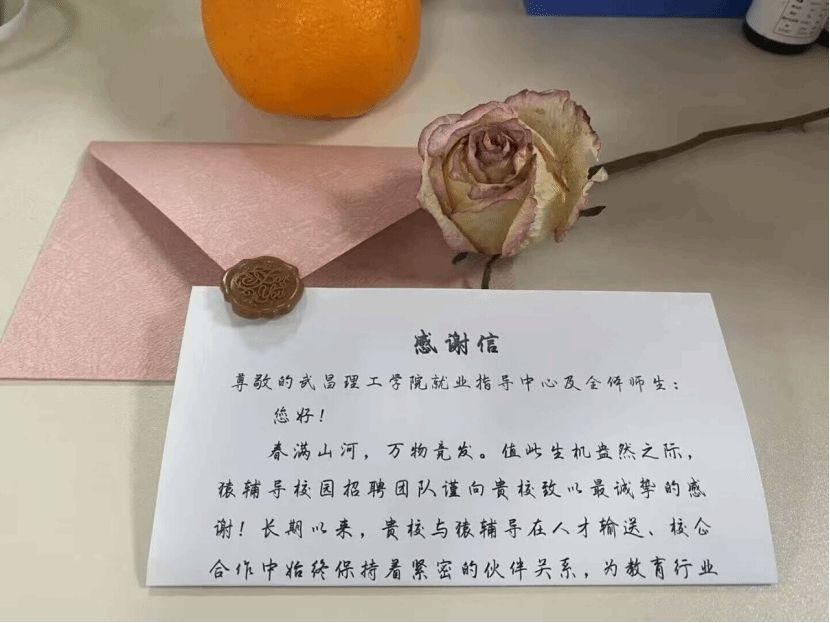 感谢信
尊敬的武昌理工学院就业指导中心及全体师生：
您好！
春满山河，万物竞发。值此生机盎然之际，
猿辅导校园招聘团队谨向贵校致以最诚挚的感
谢！长期以来，贵校与猿辅导在人才输送、校企
合作中始终保持着紧密的伙伴关系，为教育行业